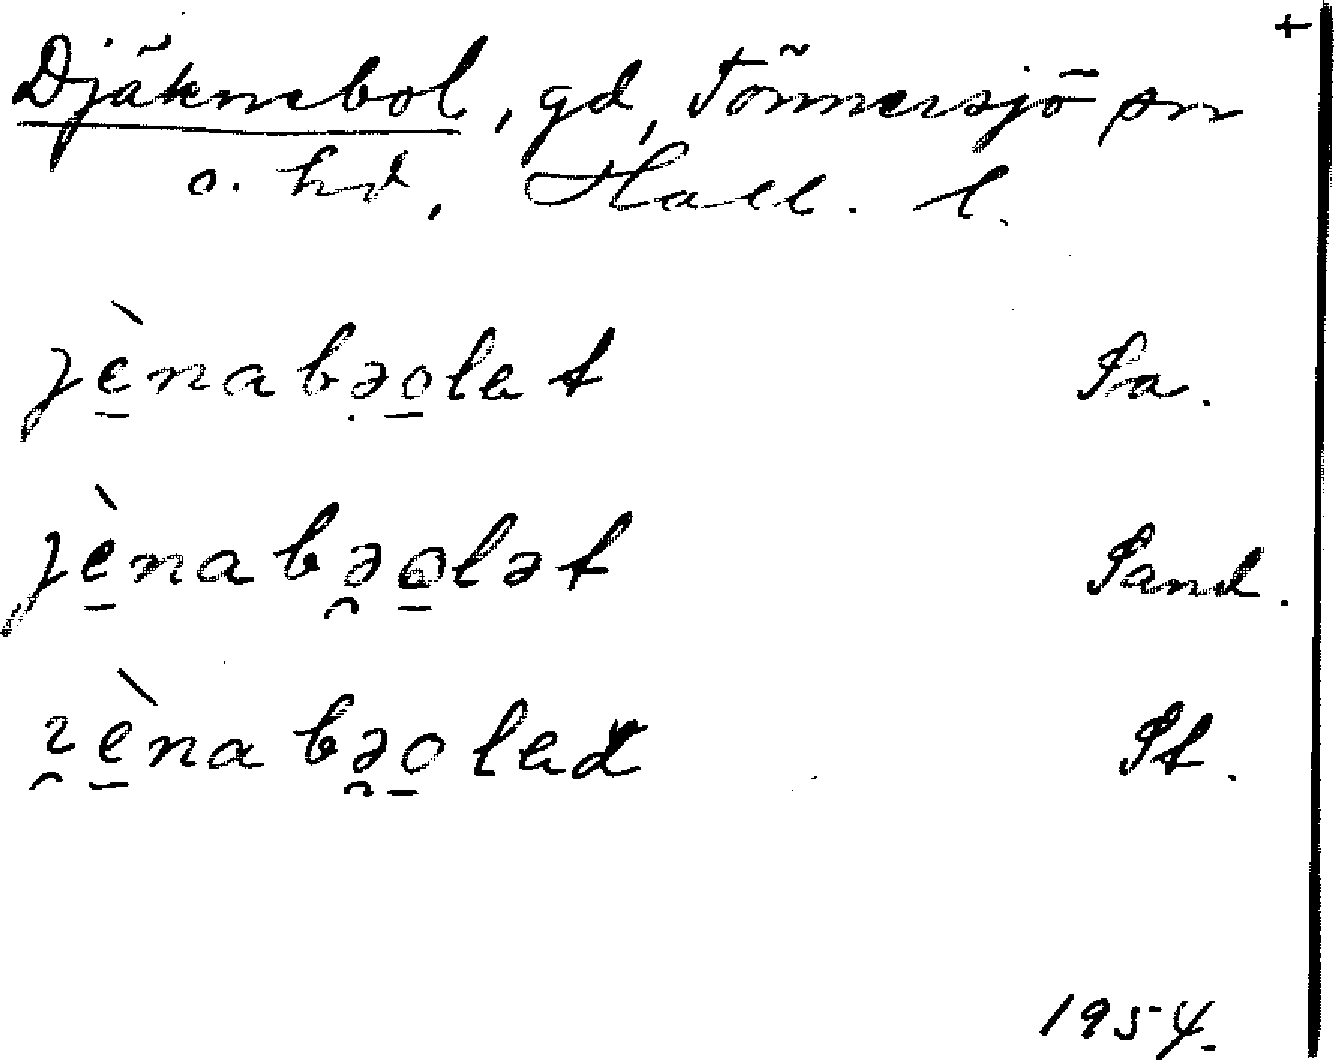 +
Djäknebol, gd, Tönnersjö sn
o. hd, Hall. l.
jè̠nabə̣o̠let Sa.
jè̠nabə̯o̠lət Sand.
ɿ̯è̠nabə̯o̠let St.
1954.